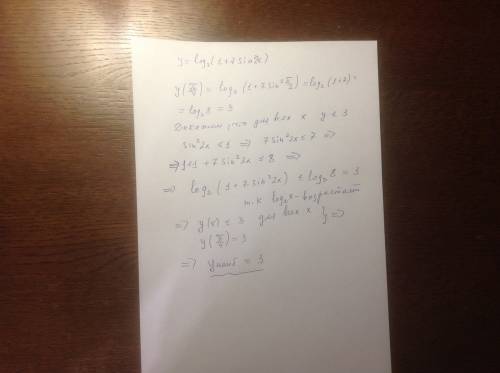 y = log₂(1+7sin²2x)
y(π/4) = log₂(1+7sin²π/2) = log₂(1+7) =
= log₂8 = 3
Докажем, что для всех x y ≤ 3
sin²2x ≤ 1 => 7sin²2x ≤ 7 =>
=> 1+7sin²2x ≤ 8 =>
=> log₂(1+7sin²2x) ≤ log₂8 = 3
т.к log₂x - возрастает
=> y(x) ≤ 3 для всех x } =>
y(π/4) = 3
=> yнаиб = 3